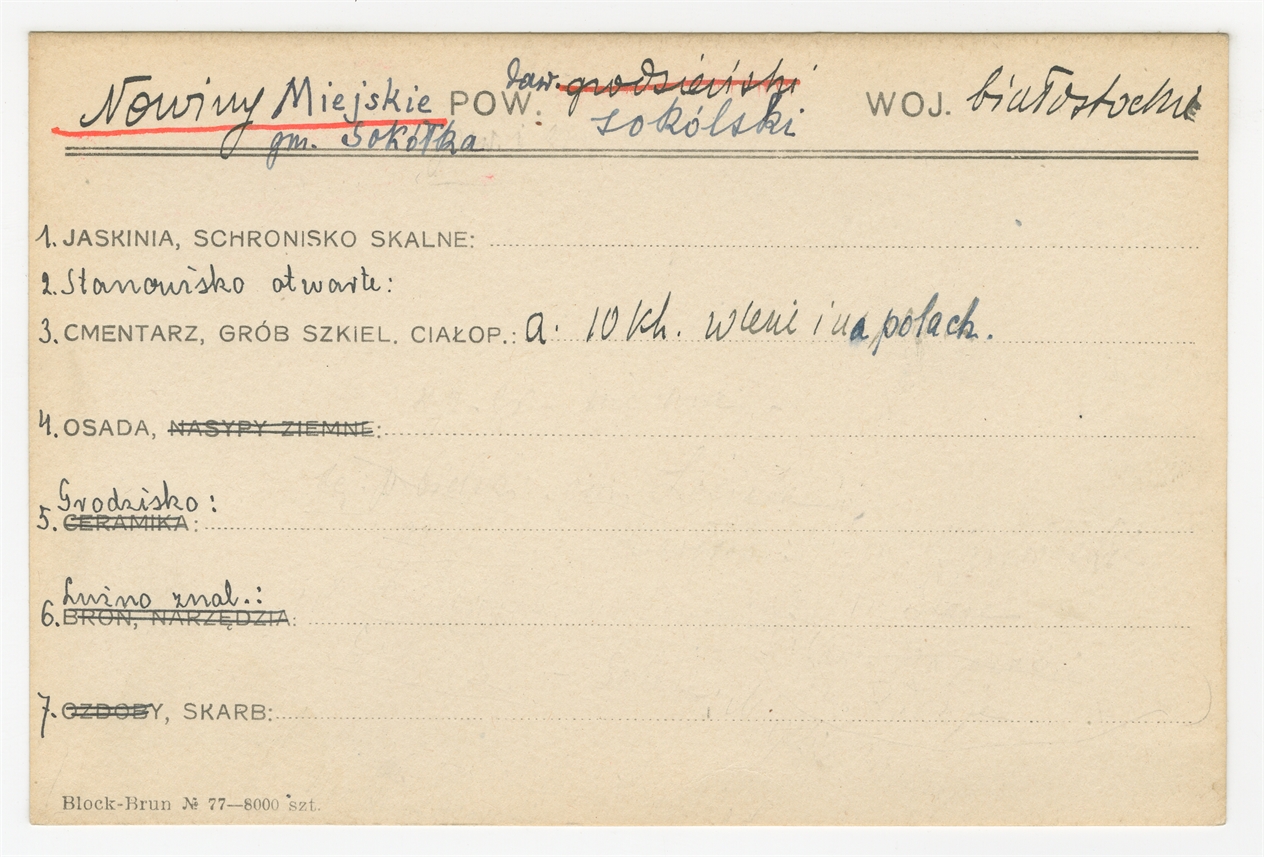 Nowiny Miejskie POW. daw. grodzieński WOJ. białostockie
gm. Sokółka sokólski
1. JASKINIA, SCHRONISKO SKALNE:
2. Stanowisko otwarte:
3. CMENTARZ, GRÓB SZKIEL. CIAŁOP.: a. 10 kh. w lesie i na polach.
4. OSADA, NASYPY ZIEMNE:
Grodzisko:
5. CERAMIKA:
Luźno znal.:
6. BROŃ, NARZĘDZIA:
7. OZDOBY, SKARB:
Block-Brun № 77—8000 szt.